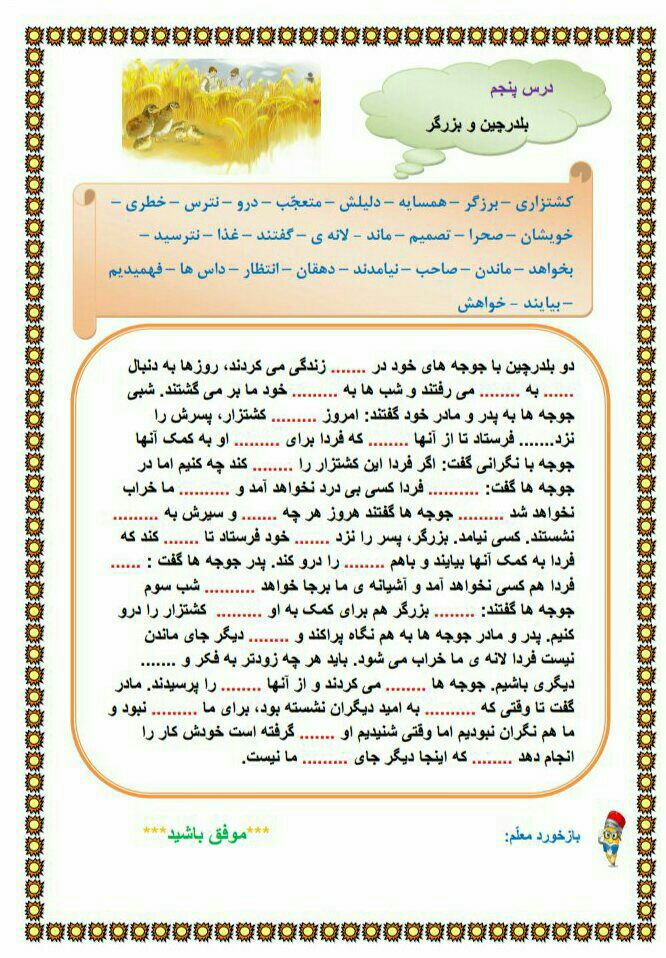 درس پنجم
بلدرچین و بزرگر
کشتزاری – برزگر – همسایه – دلیلش – متعجّب – درو – نترس – خطری –
خویشان – صحرا – تصمیم – ماند - لانه ی – گفتند – غذا – نترسید –
بخواهد – ماندن – صاحب – نیامدند – دهقان – انتظار – داس ها – فهمیدیم
– بیایند - خواهش
دو بلدرچین با جوجه های خود در ....... زندگی می کردند، روزها به دنبال
...... به ........ می رفتند و شب ها به ......... خود ما بر می گشتند. شبی
جوجه ها به پدر و مادر خود گفتند: امروز ......... کشتزار، پسرش را
نزد....... فرستاد تا از آنها ........ که فردا برای ......... او به کمک آنها
جوجه با نگرانی گفت: اگر فردا این کشتزار را ........ کند چه کنیم اما در
جوجه ها گفت: .......... فردا کسی بی درد نخواهد آمد و .......... ما خراب
نخواهد شد ......... جوجه ها گفتند هروز هر چه ....... و سیرش به .........
نشستند. کسی نیامد. بزرگر، پسر را نزد ....... خود فرستاد تا ....... کند که
فردا به کمک آنها بیایند و باهم ........ را درو کند. پدر جوجه ها گفت : ......
فردا هم کسی نخواهد آمد و آشیانه ی ما برجا خواهد .......... شب سوم
جوجه ها گفتند: ........ بزرگر هم برای کمک به او ......... کشتزار را درو
کنیم. پدر و مادر جوجه ها به هم نگاه پراکند و ........ دیگر جای ماندن
نیست فردا لانه ی ما خراب می شود. باید هر چه زودتر به فکر و .......
دیگری باشیم. جوجه ها ........ می کردند و از آنها ........ را پرسیدند. مادر
گفت تا وقتی که .......... به امید دیگران نشسته بود، برای ما ......... نبود و
ما هم نگران نبودیم اما وقتی شنیدیم او ....... گرفته است خودش کار را
انجام دهد ........ که اینجا دیگر جای ......... ما نیست.
بازخورد معلّم:
***موفق باشید***